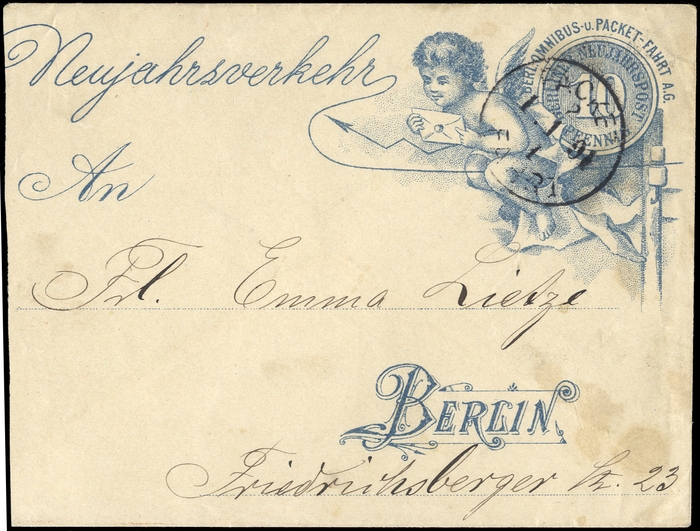 Neujahrsverkehr
BERL. OMNIBUS-u. PACKET-FAHRT A.G.
NEUJAHRSPOST
10
PFENNIG
An
Frl. Emma Lietze
BERLIN
Friedrichsberger str. 23